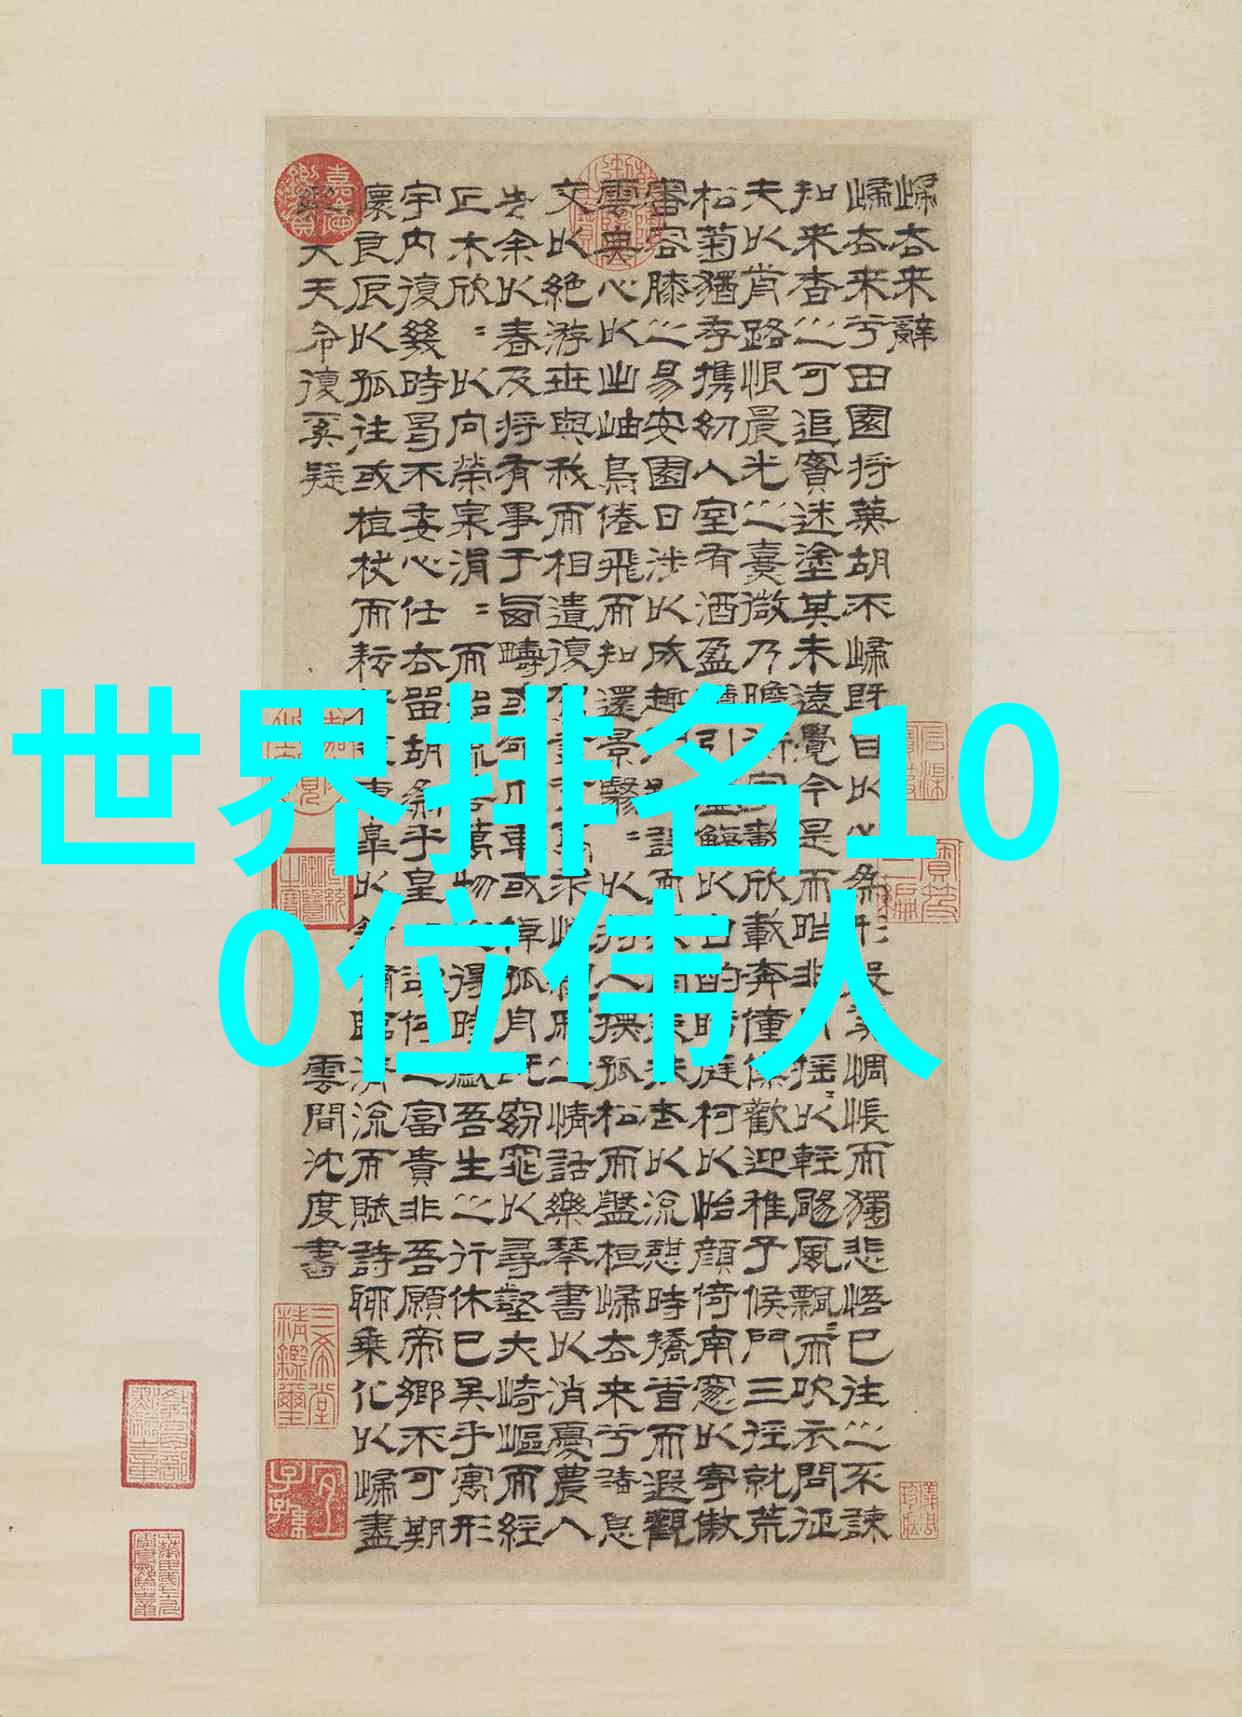 歸去来辭
歸去来兮田園将蕪胡不歸既自以心為形役奚惆悵而獨悲悟已往之不諫
知来者之可追實迷塗其未遠覺今是而昨非舟摇〻以輕颺風飄〻而吹衣問征
夫以前路恨晨光之熹微乃瞻衡宇載欣載奔僮僕歡迎稚子候門三徑就荒
松菊猶存攜幼入室有酒盈樽引壺觴以自酌眄庭柯以怡顏倚南窓以寄傲
審容膝之易安園日涉以成趣門雖設而常關策扶老以流憩時矯首而遐觀
雲無心以出岫鳥倦飛而知還景翳〻以将入撫孤松而盤桓歸去来兮請息
交以絶游世與我而相遺復駕言兮焉求悅親戚之情話樂琴書以消憂農人
告余以春及将有事于西疇或命巾車或棹孤舟既窈窕以尋壑亦崎嶇而經
丘木欣〻以向榮泉涓〻而始流善萬物之得時感吾生之行休已矣乎寓形
宇内復幾時曷不委心任去留胡為乎皇〻欲何之富貴非吾願帝鄉不可期
懷良辰以孤往或植杖而耘耔登東皋以舒嘯臨清流而賦詩聊乘化以歸盡
樂夫天命復奚疑
雲間沈度書
世界排名10
0位伟人
三希堂精鑑璽
宜子孫